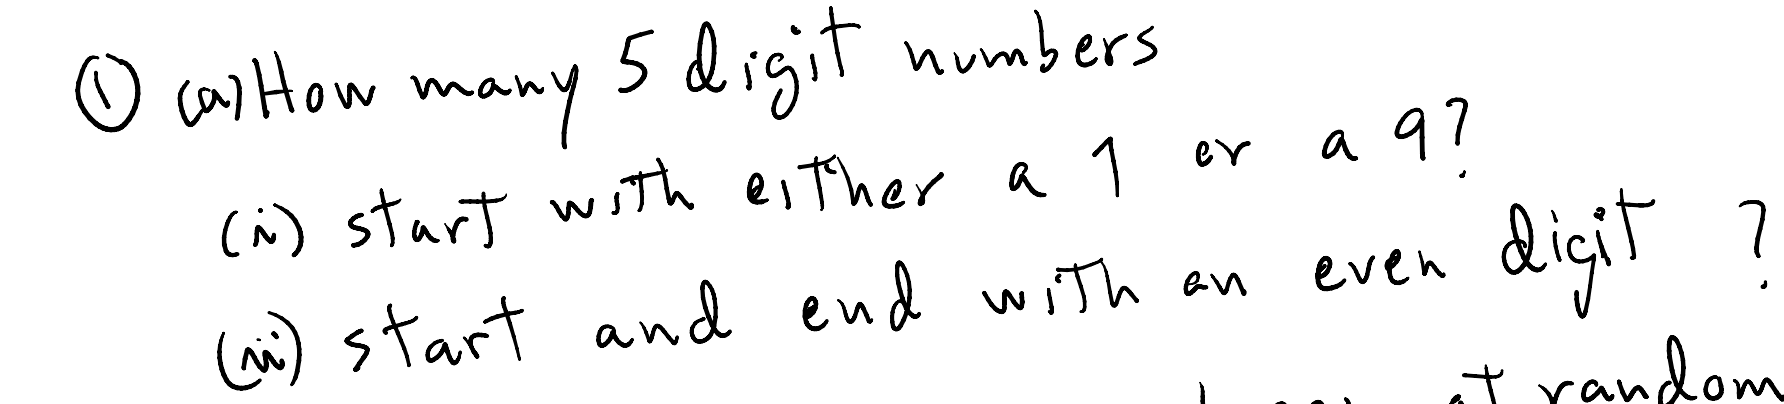 ① (a) How many 5 digit numbers
(i) start with either a 1 or a 9?
(ii) start and end with an even digit ?
at random